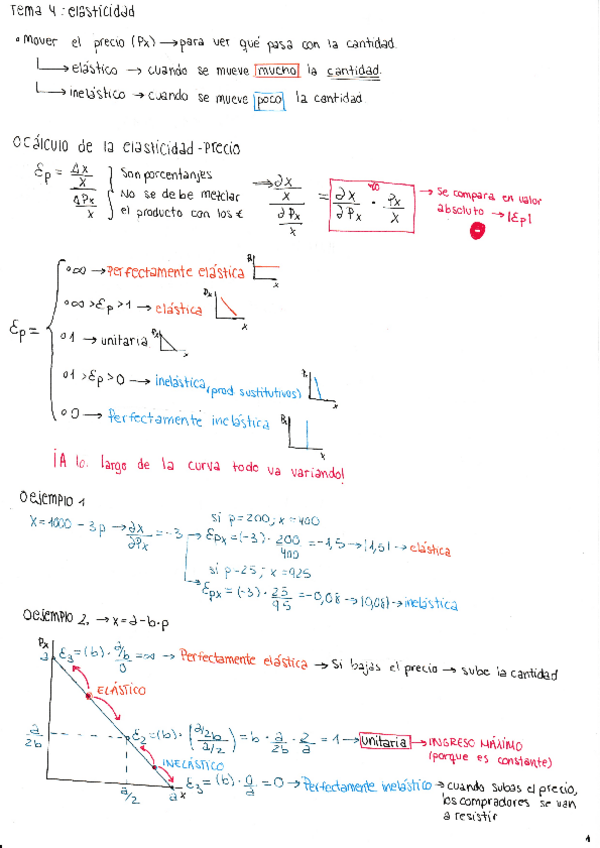 Tema 4: elasticidad
• Mover el precio (Px) → para ver qué pasa con la cantidad.
→ elástico → cuando se mueve mucho la cantidad.
→ inelástico → cuando se mueve poco la cantidad
O CÁLCULO de la elasticidad-Precio
Ep = Δx/x / ΔPx/x } Son porcentanjes No se debe mezclar el producto con los € → ∂x/x / ∂Px/x = ∂x/∂Px · Px/x → Se compara en valor absoluto → |Ep|
-
Ep =
∞ → Perfectamente elástica Px x
∞ > Ep > 1 → elástica Px x
1 → unitaria Px x
1 > Ep > 0 → inelástica (prod sustitutivos) x
0 → Perfectamente inelástica Px x
¡A lo largo de la curva todo va variando!
O ejemplo 1
x = 1000 - 3p → ∂x/∂Px = -3
si p=200; x=400
→ Epx = (-3) · 200/400 = -1,5 → |1,5| → elástica
si p=25; x=925
→ Epx = (-3) · 25/95 = -0,08 → |0,08| → inelástica
O ejemplo 2. → x = a - b·p
Px
a E3 = (b) · a/b / 0 = ∞ → Perfectamente elástica → Si bajas el precio → sube la cantidad
ELÁSTICO
a/2b E2 = (b) · (a/2b / a/2) = b · a/2b · 2/a = 1 → unitaria → INGRESO MÁXIMO
(porque es constante)
INELÁSTICO
a/2 a x E3 = (b) · 0/a = 0 → Perfectamente inelástico → cuando subas el precio,
los compradores se van
a resistir
1